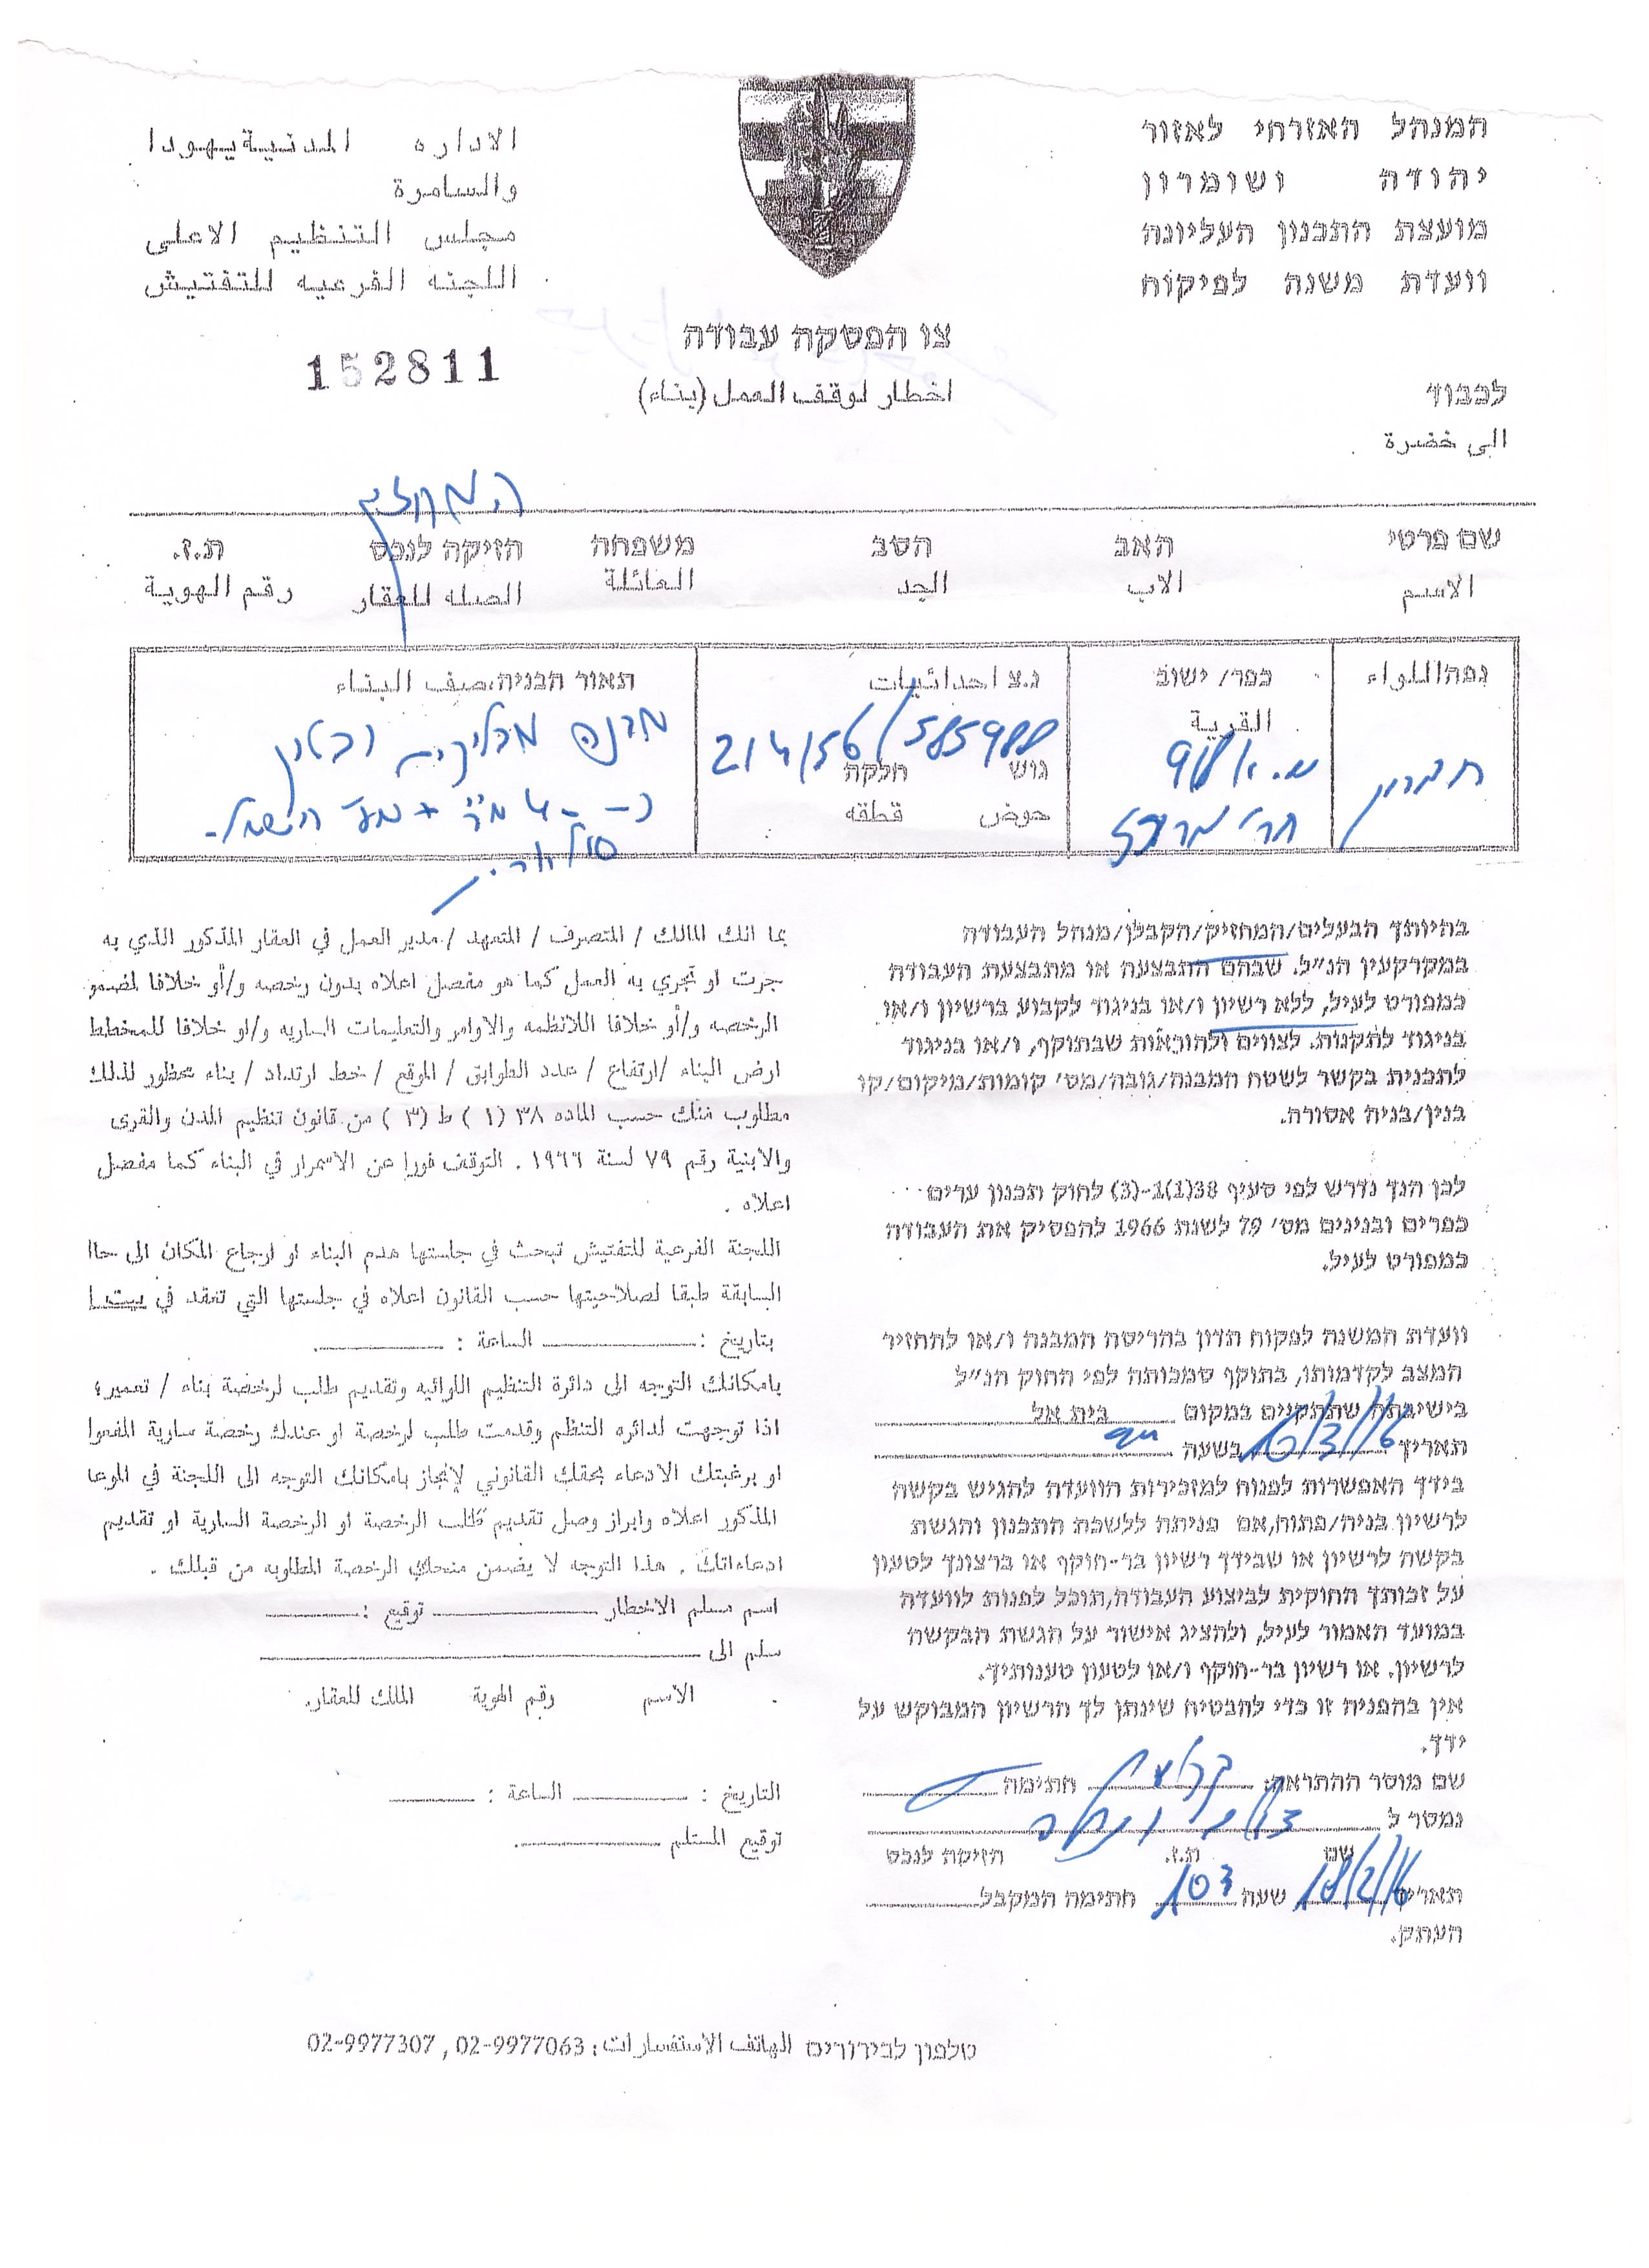 המנהל האזרחי לאזור
יהודה ושומרון
מועצת התכנון העליונה
וועדת משנה לפיקוח
الاداره المدنية يهودا
والسامرة
مجلس التنظيم الاعلى
اللجنه الفرعيه للتفتيش
צו הפסקה עבודה
152811
اخطار لوقف العمل (بناء)
לכבוד
الى حضرة
המחזיק
שם פרטי האב הסב משפחה חזיקה לנכס ת.ז.
الاسم الاب الجد العائلة الصله للعقار رقم الهوية
נפה اللواء כפר/ ישוב נ.צ احداثيات תאור הבניה، صيف البناء
القرية
גוש חלקה
حوض قطقه
חברון
214156/585988
בהיותך הבעלים/המחזיק/הקבלן/מנהל העבודה
במקרקעין הנ״ל. שבהם התבצעה או מתבצעת העבודה
כמפורט לעיל, ללא רשיון ו/או בניגוד לקבוע ברשיון ו/או
בניגוד לתקנות. לצווים ולהוראות שבתוקף, ו/או בניגוד
לתכנית בקשר לשטח המבנה/גובה/מס׳ קומות/מיקום/קו
בנין/בניה אסורה.
לכן הנך נדרש לפי סעיף 38(1)1-(3) לחוק תכנון ערים
כפרים ובנינים מס׳ 79 לשנת 1966 להפסיק את העבודה
כמפורט לעיל.
וועדת המשנה לפקוח תדון בהריסה המבנה ו/או להחזיר
המצב לקדמותו, בתוקף סמכותה לפי החוק הנ״ל
בישיבתה שתתקיים במקום בית אל
תאריך 16/3/16 בשעה
בידך האפשרות לפנות למזכירות הוועדה להגיש בקשה
לרשיון בניה/פתוח,אם פניתה ללשכת התכנון והגשת
בקשה לרשיון או שבידך רשיון בר-תוקף או ברצונך לטעון
על זכותך החוקית לביצוע העבודה,תוכל לפנות לוועדה
במועד האמור לעיל, ולהציג אישור על הגשת הבקשה
לרשיון. או רשיון בר-תוקף ו/או לטעון טענותיך.
אין בהפניה זו כדי להבטיח שינתן לך הרשיון המבוקש על
ידך.
שם מוסר ההתראה: חתימה
נמסר ל
שם ת.ז. חזיקה לנכס
תאריך 18/2/16 שעה 103 חתימה המקבל
העתק.
بما انك المالك / المتصرف / المتعهد / مدير العمل في العقار المذكور الذي به
جرت او تجري به العمل كما هو مفصل اعلاه بدون رخصه و/أو خلافا لمضمو
الرخصه و/أو خلافا اللانظمه والاوامر والتعليمات الساريه و/او خلافا للمخطط
ارض البناء /ارتفاع / عدد الطوابق / الموقع / خط ارتداد / بناء محظور لذلك
مطلوب منك حسب الماده ٣٨ (١) ط (٣) من قانون تنظيم المدن والقرى
والابنية رقم ٧٩ لسنة ١٩٦٦ . التوقف فورا عن الاسمرار في البناء كما مفصل
اعلاه .
اللجنة الفرعية للتفتيش تبحث في جلستها هدم البناء او ارجاع المكان الى حاا
السابقة طبقا لصلاحيتها حسب القانون اعلاه في جلستها التي تعقد في بيت ا
بتاريخ : الساعة :
بامكانك التوجه الى دائرة التنظيم اللوائيه وتقديم طلب لرخصة بناء / تعمير؛
اذا توجهت لدائره التنظم وقدمت طلب لرخصة او عندك رخصة سارية المفعوا
او برغبتك الادعاء بحقك القانوني لإنجاز بامكانك التوجه الى اللجنة في الموعا
المذكور اعلاه وابراز وصل تقديم طلب الرخصة او الرخصة السارية او تقديم
ادعاءاتك . هذا التوجه لا يضمن منحك الرخصة المطلوبه من قبلك .
اسم مسلم الاخطار توقيع :
سلم الى
الاسم رقم الهوية الملك للعقار.
التاريخ : الساعة :
توقيع المستلم
טלפון לבירורים الهاتف الاستفسارات: 02-9977063 , 02-9977307